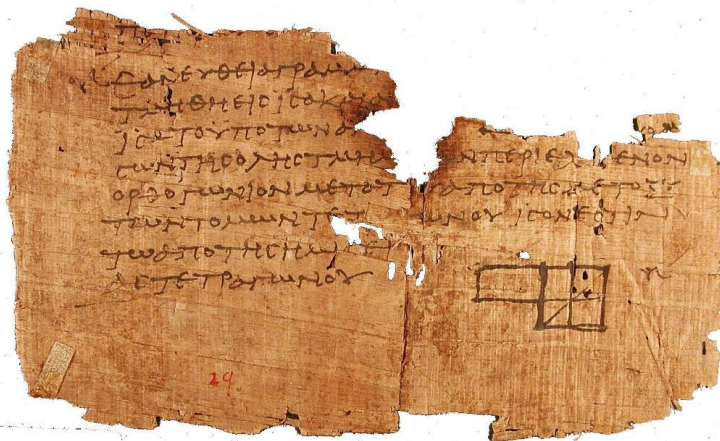 ΕΑΝΕΥΘΕΙΑΓΡΑΜΜ
ΤΜΗΘΗΕΙϹΙϹΑΚΑΙΑ
ΙϹΑΤΟΥΠΟΤΩΝΑ
ϹΩΝΤΗϹΟΛΗϹΤΜΗΜ ΩΝΠΕΡΙΕΧΟΜΕΝΟΝ
ΟΡΘΟΓΩΝΙΟΝΜΕΤΑΤ ΥΑΠΟΤΗϹΜΕΤΟΞΥ
ΤΩΝΤΟΜΩΝΤΕΤ ΩΝΟΥΙϹΟΝΕϹΤΙΝ
ΤΩΑΠΟΤΗϹΗΜΙϹΕΙ
ΑϹΤΕΤΡΑΓΩΝΟΥ
29